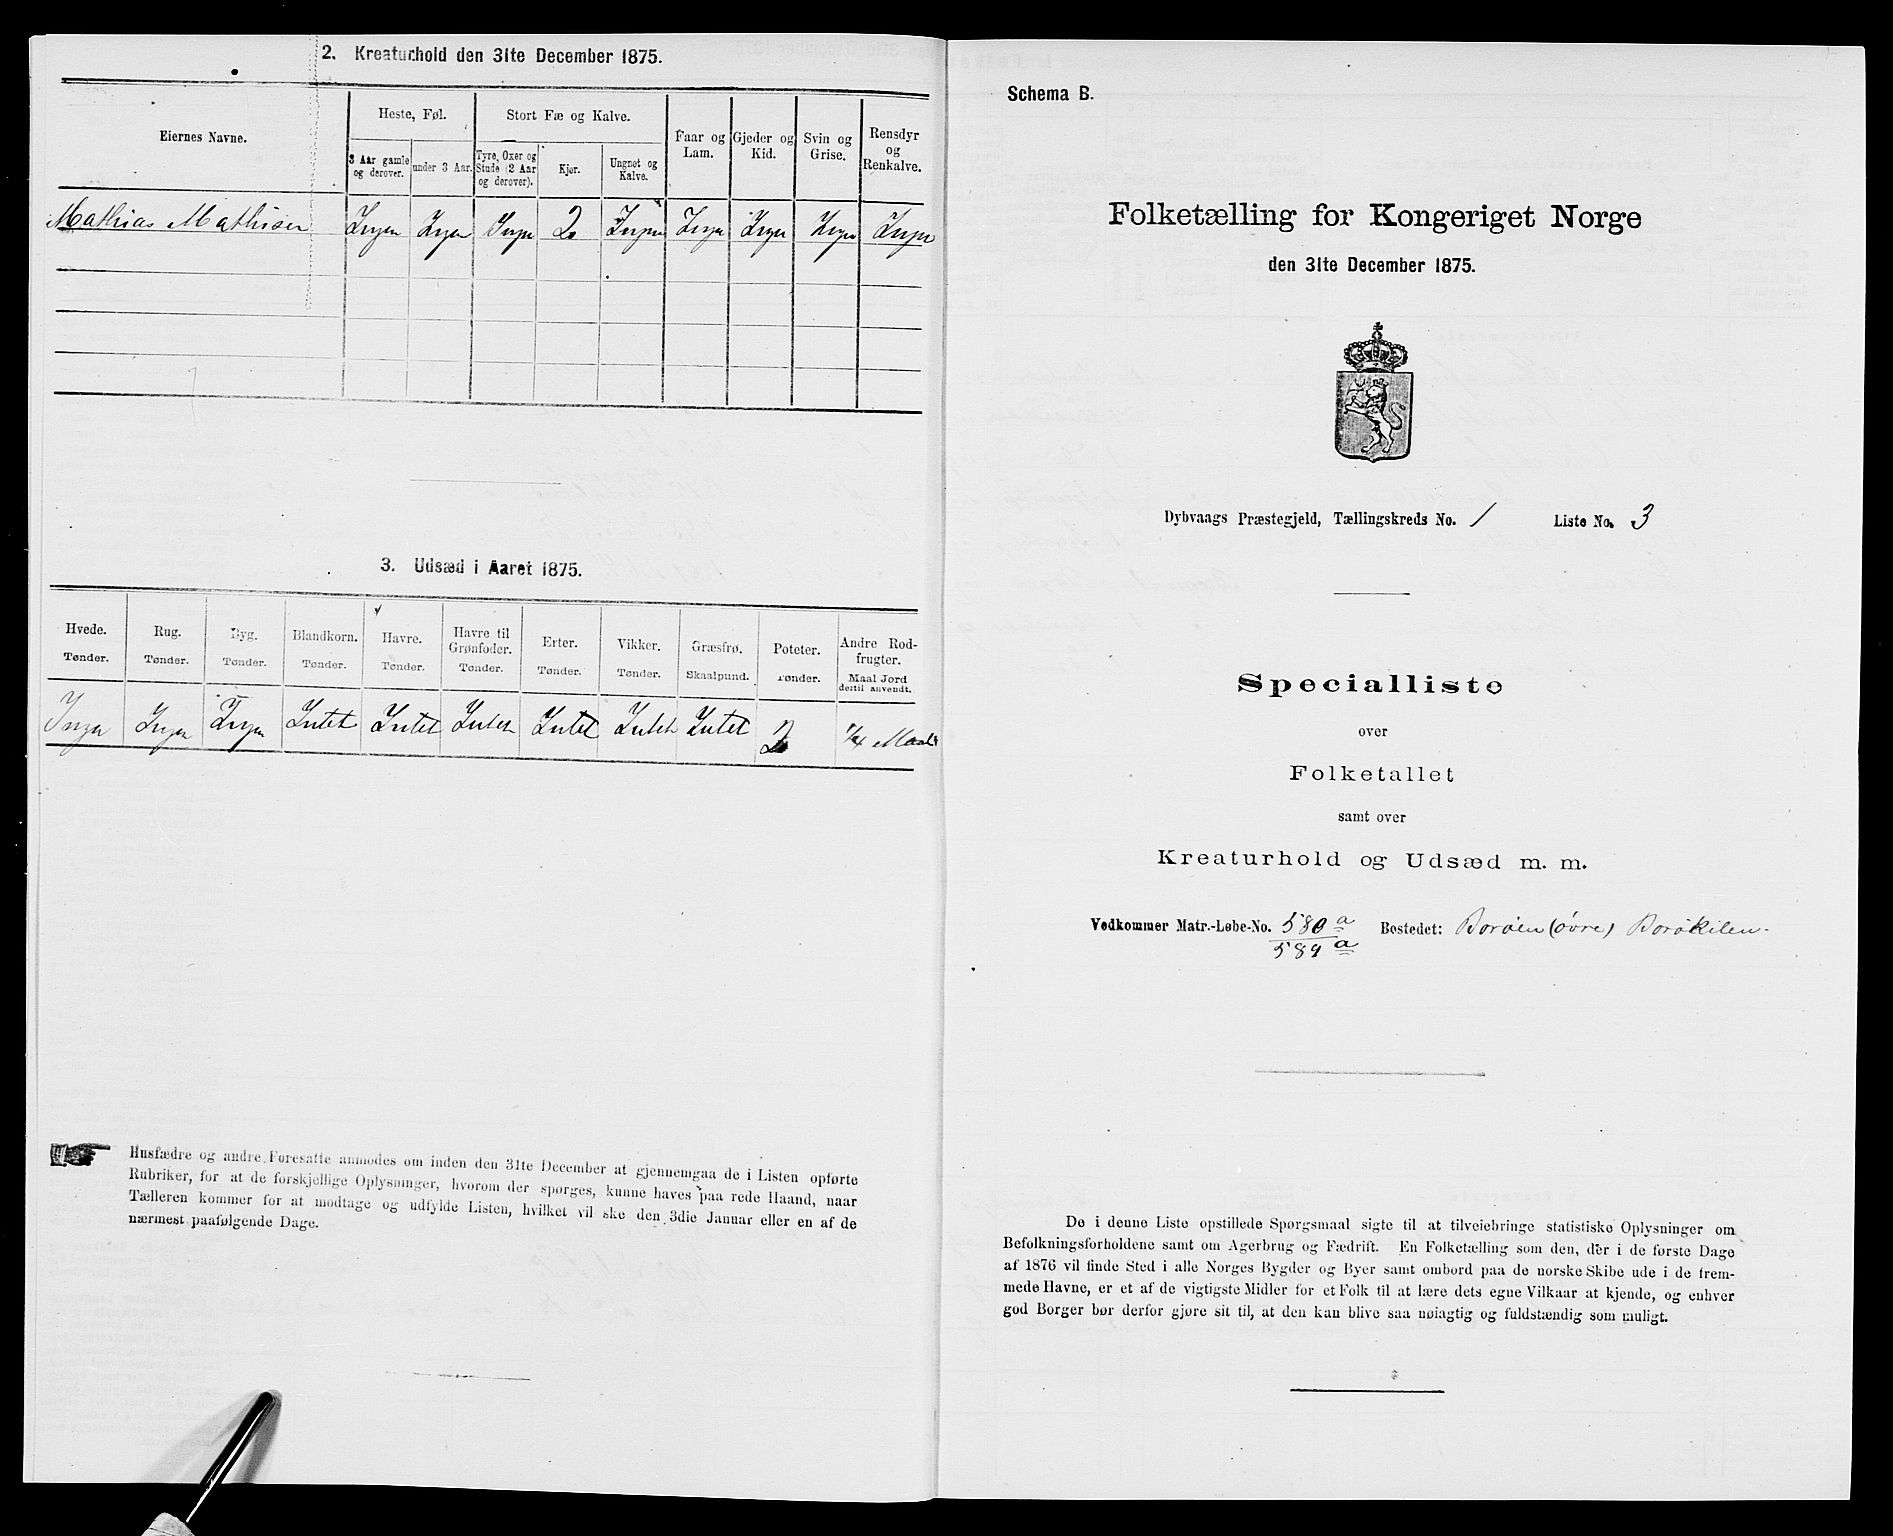 2. Kreaturhold den 31te December 1875.
Eiernes Navne.
Heste, Føl.
Stort Fæ og Kalve.
Faar og Lam.
Gjeder og Kid.
Svin og Grise.
Rensdyr og Renkalve.
3 Aar gamle og derover.
under 3 Aar.
Tyre, Oxer og Stude (2 Aar og derover).
Kjør.
Ungnet og Kalve.
Mathias Mathisen Ingen Ingen Ingen 2 Ingen Ingen Ingen Ingen Ingen
3. Udsæd i Aaret 1875.
Hvede. Rug. Byg. Blandkorn. Havre. Havre til Grønfoder. Erter. Vikker. Græsfrø. Poteter. Andre Rodfrugter.
Tønder. Tønder. Tønder. Tønder. Tønder. Tønder. Tønder. Tønder. Skaalpund. Tønder. Maal Jord dertil anvendt.
Ingen Ingen Ingen Intet Intet Intet Intet Intet Intet 2 1/4 Maal
Husfædre og andre Foresatte anmodes om inden den 31te December at gjennemgaa de i Listen opførte
Rubriker, for at de forskjellige Oplysninger, hvorom der spørges, kunne haves paa rede Haand, naar
Tælleren kommer for at modtage og udfylde Listen, hvilket vil ske den 3die Januar eller en af de
nærmest paafølgende Dage.
Schema B.
Folketælling for Kongeriget Norge
den 31te December 1875.
Dybvaags Præstegjeld, Tællingskreds No. 1 Liste No. 3
Specialliste
over
Folketallet
samt over
Kreaturhold og Udsæd m. m.
Vedkommer Matr.-Løbe-No. 580 a Bostedet: Borøen (övre) Borökilen.
589 a
De i denne Liste opstillede Spørgsmaal sigte til at tilveiebringe statistiske Oplysninger om
Befolkningsforholdene samt om Agerbrug og Fædrift. En Folketælling som den, der i de første Dage
af 1876 vil finde Sted i alle Norges Bygder og Byer samt ombord paa de norske Skibe ude i de frem-
mede Havne, er et af de vigtigste Midler for et Folk til at lære dets egne Vilkaar at kjende, og enhver
god Borger bør derfor gjøre sit til, at den kan blive saa nøiagtig og fuldstændig som muligt.